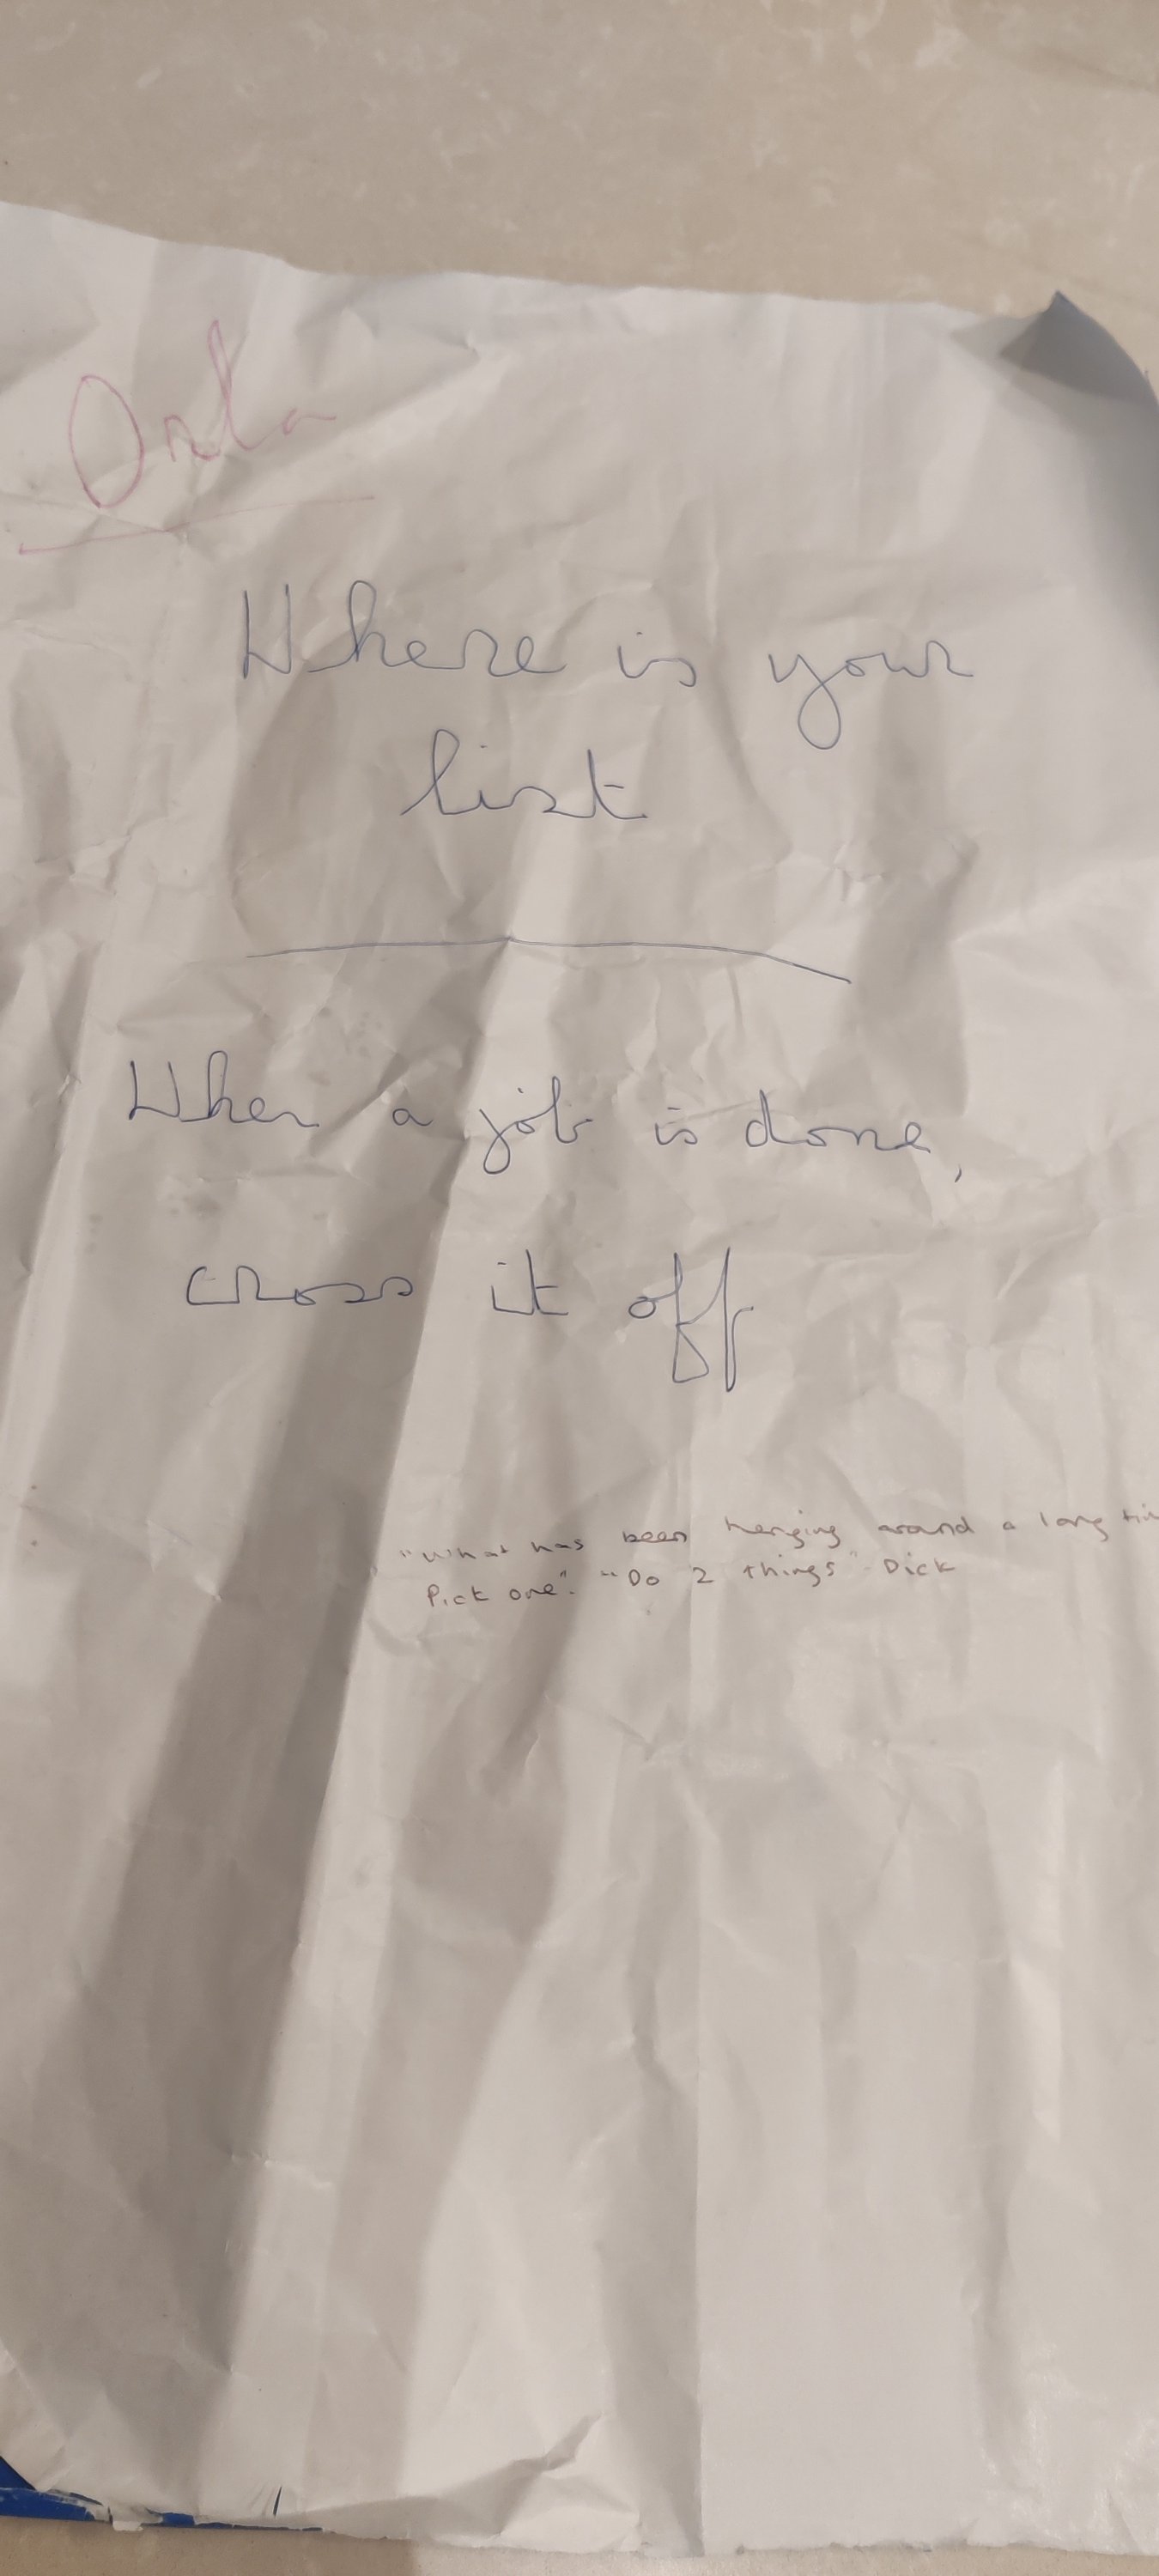 Orla
Where is your
list
When a job is done,
cross it off
"What has been hanging around a long
Pick one". "Do 2 things" Dick